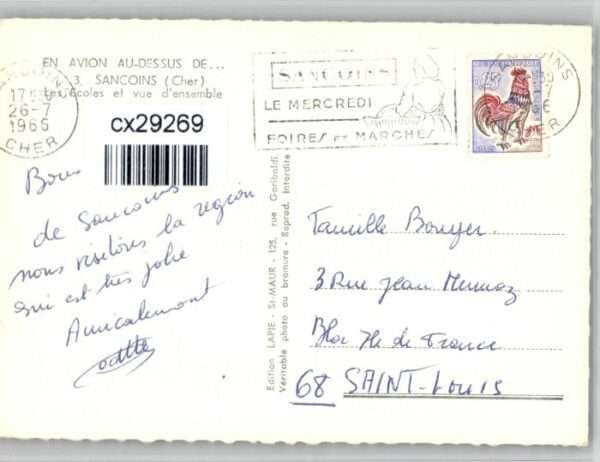 EN AVION AU-DESSUS DE...
3. SANCOINS (Cher)
Les écoles et vue d'ensemble
17
26-7
1965
CHER
SANCOINS
LE MERCREDI
FOIRES ET MARCHÉS
SANCOINS
CHER
cx29269
Bons
de Sancoins
nous visitons la region
qui est très jolie
Amicalement
odette
Edition LAPIE - St-MAUR - 125, rue Garibaldi.
Véritable photo au bromure - Reprod. Interdite
Famille Bouyer
3 Rue Jean Mermoz
Bloc Ile de France
68 SAINT-LOUIS